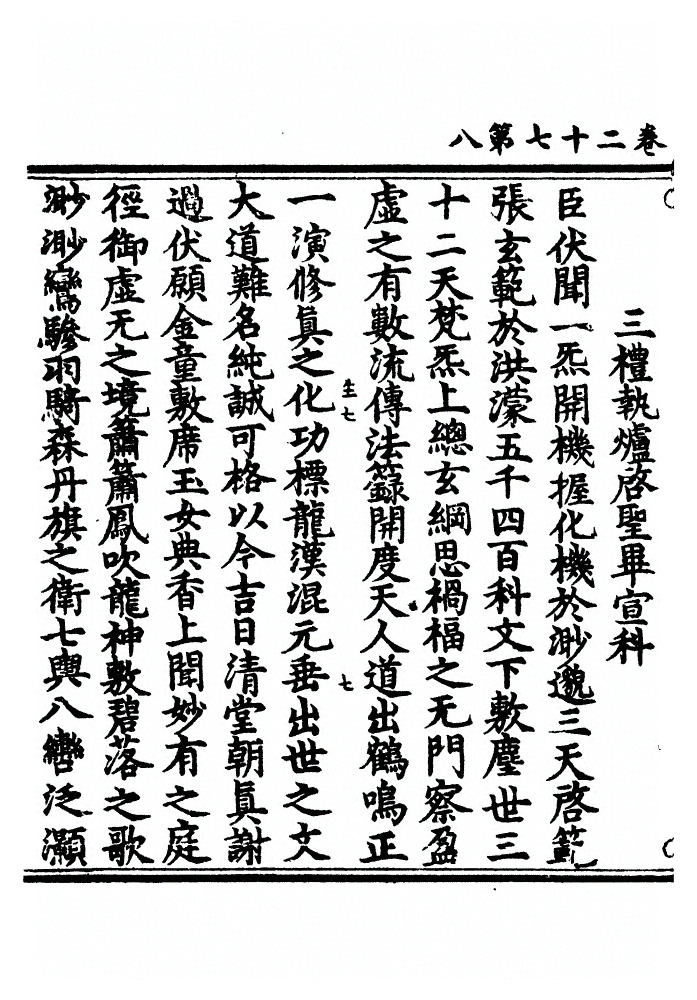 卷二十七第八
三禮執爐啓聖畢宣科
臣伏聞一炁開機握化機於渺邈三天啓範
張玄範於洪濛五千四百科文下敷塵世三
十二天梵炁上總玄綱思禍福之无門察盈
虛之有數流傳法籙開度天人道出鶴鳴正
一演修眞之化功標龍漢混元垂出世之文
生七
七
大道難名純誠可格以今吉日清堂朝眞謝
過伏願金童敷席玉女典香上聞妙有之庭
徑御虛无之境簫簫鳳吹龍神敷碧落之歌
渺渺鸞驂羽騎森丹旗之衛七輿八轡泛灝